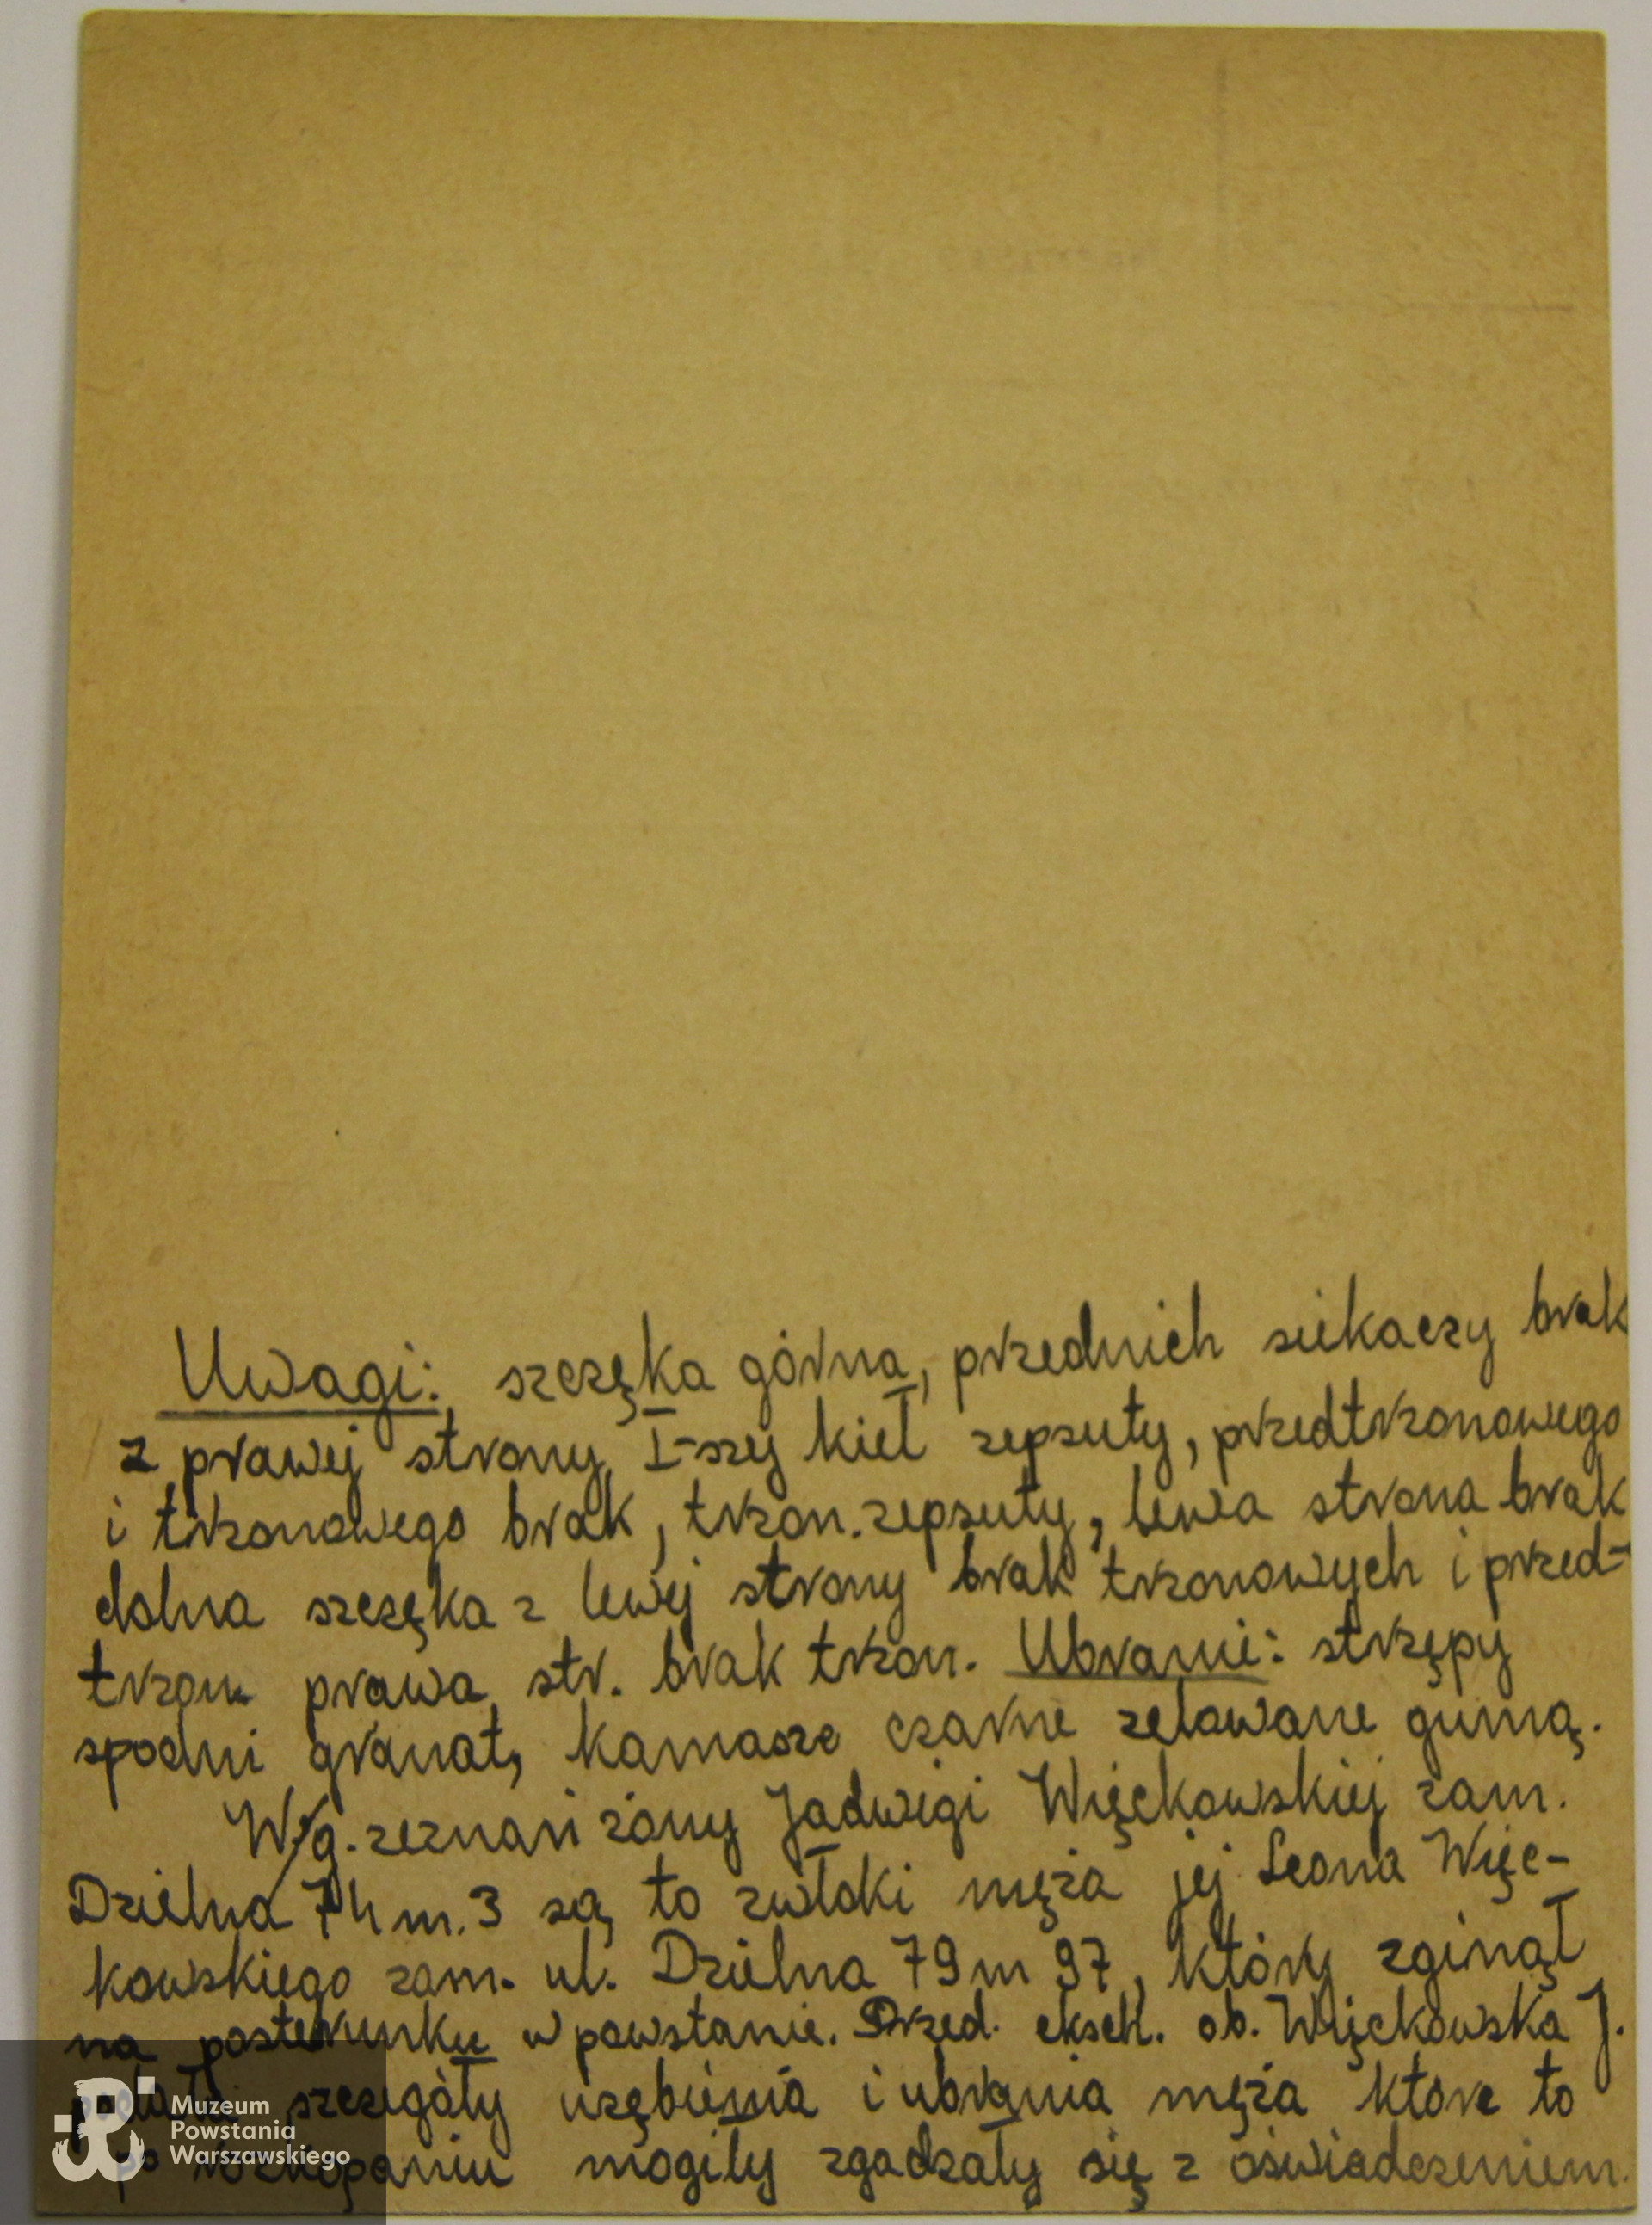 Uwagi: szczęka górna, przednich siekaczy brak
z prawej strony I-szy kieł zepsuty, przedtrzonowego
i trzonowego brak, trzon. zepsuty, lewa strona brak
dolna szczęka z lewej strony brak trzonowych i przed-
trzon prawa str. brak trzon. Ubranie: strzępy
spodni granat, kamasze czarne zelowane gumą.
W/g. zeznań żony Jadwigi Więckowskiej zam.
Dzielna 74 m. 3 są to zwłoki męża jej Leona Więc-
kowskiego zam. ul. Dzielna 79 m 97, który zginął
na posterunku w powstanie. Przed. eksch. ob. Więckowska J.
podała szczegóły uzębienia i ubrania męża które to
po rozkopaniu mogiły zgadzały się z oświadczeniem.
Muzeum
Powstania
Warszawskiego